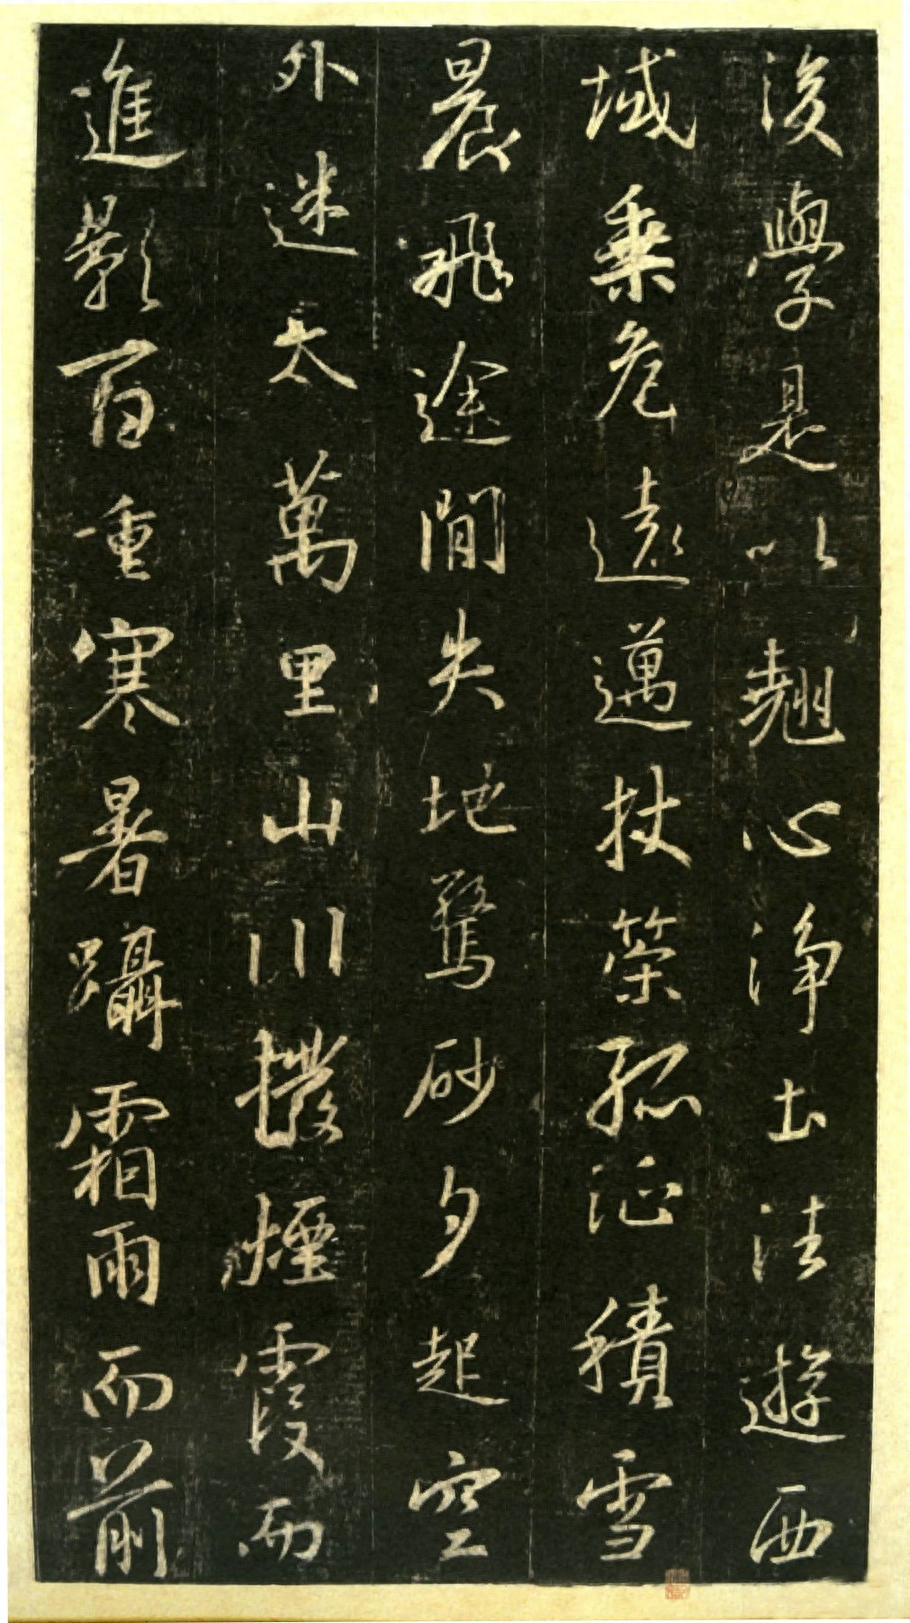 後學是以翹心淨土往遊西
域乘危遠邁杖策孤征積雪
晨飛途間失地驚砂夕起空
外迷天萬里山川撥煙霞而
進影百重寒暑躡霜雨而前